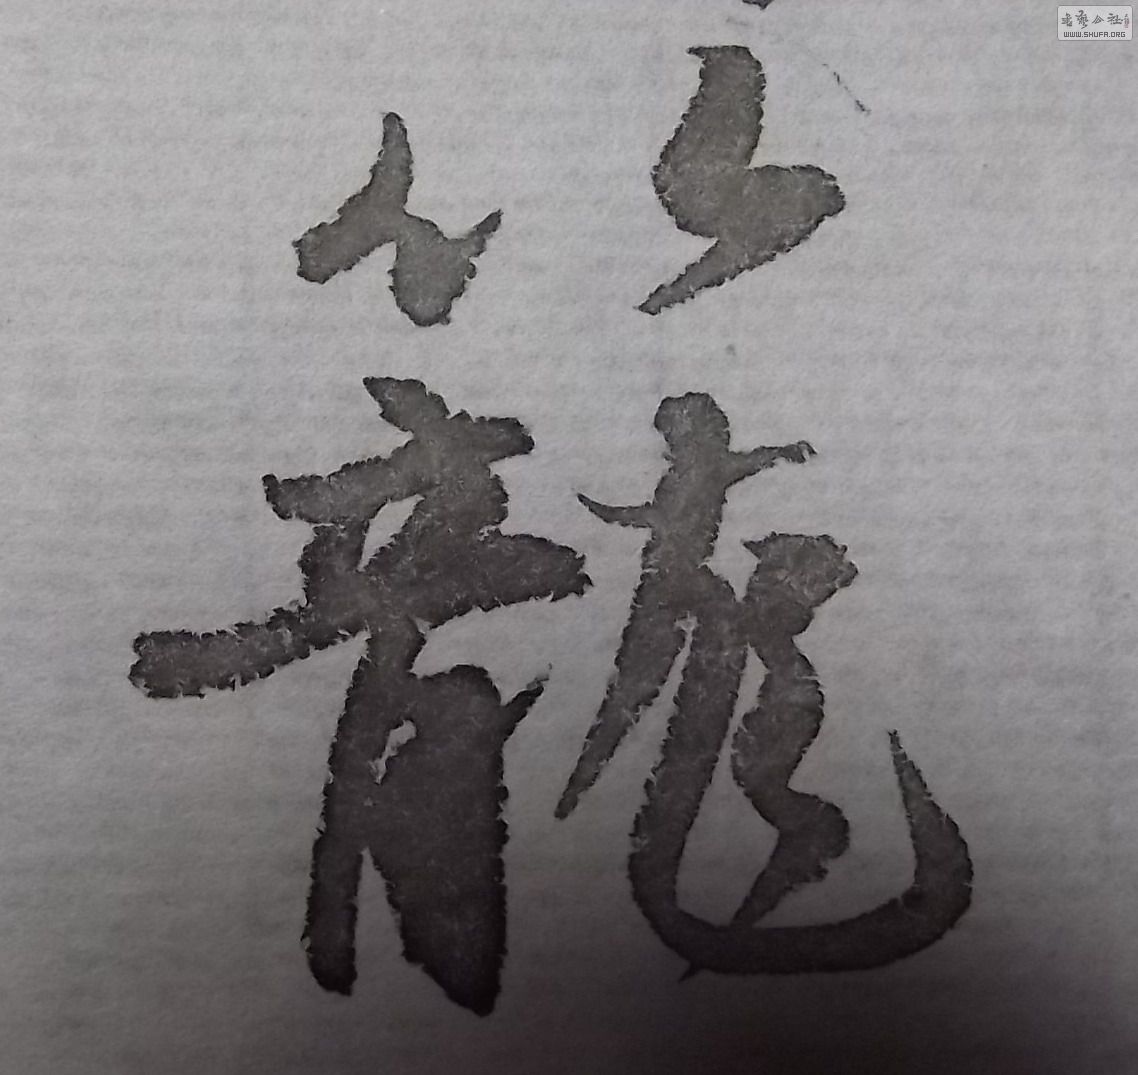 籠
书艺公社
WWW.SHUFA.ORG